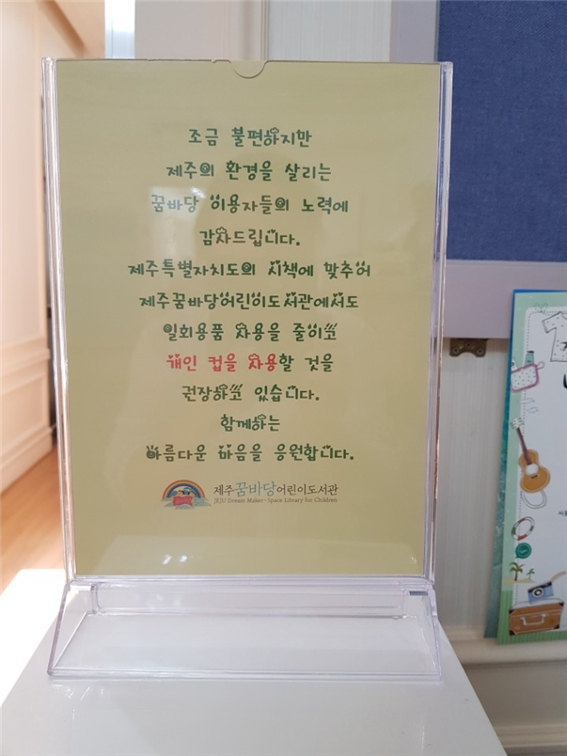 조금 불편하지만
제주의 환경을 살리는
꿈바당 이용자들의 노력에
감사드립니다.
제주특별자치도의 시책에 맞추어
제주꿈바당어린이도서관에서도
일회용품 사용을 줄이고
개인 컵을 사용할 것을
권장하고 있습니다.
함께하는
아름다운 마음을 응원합니다.
제주꿈바당어린이도서관
JEJU Dream Maker-Space Library for Children